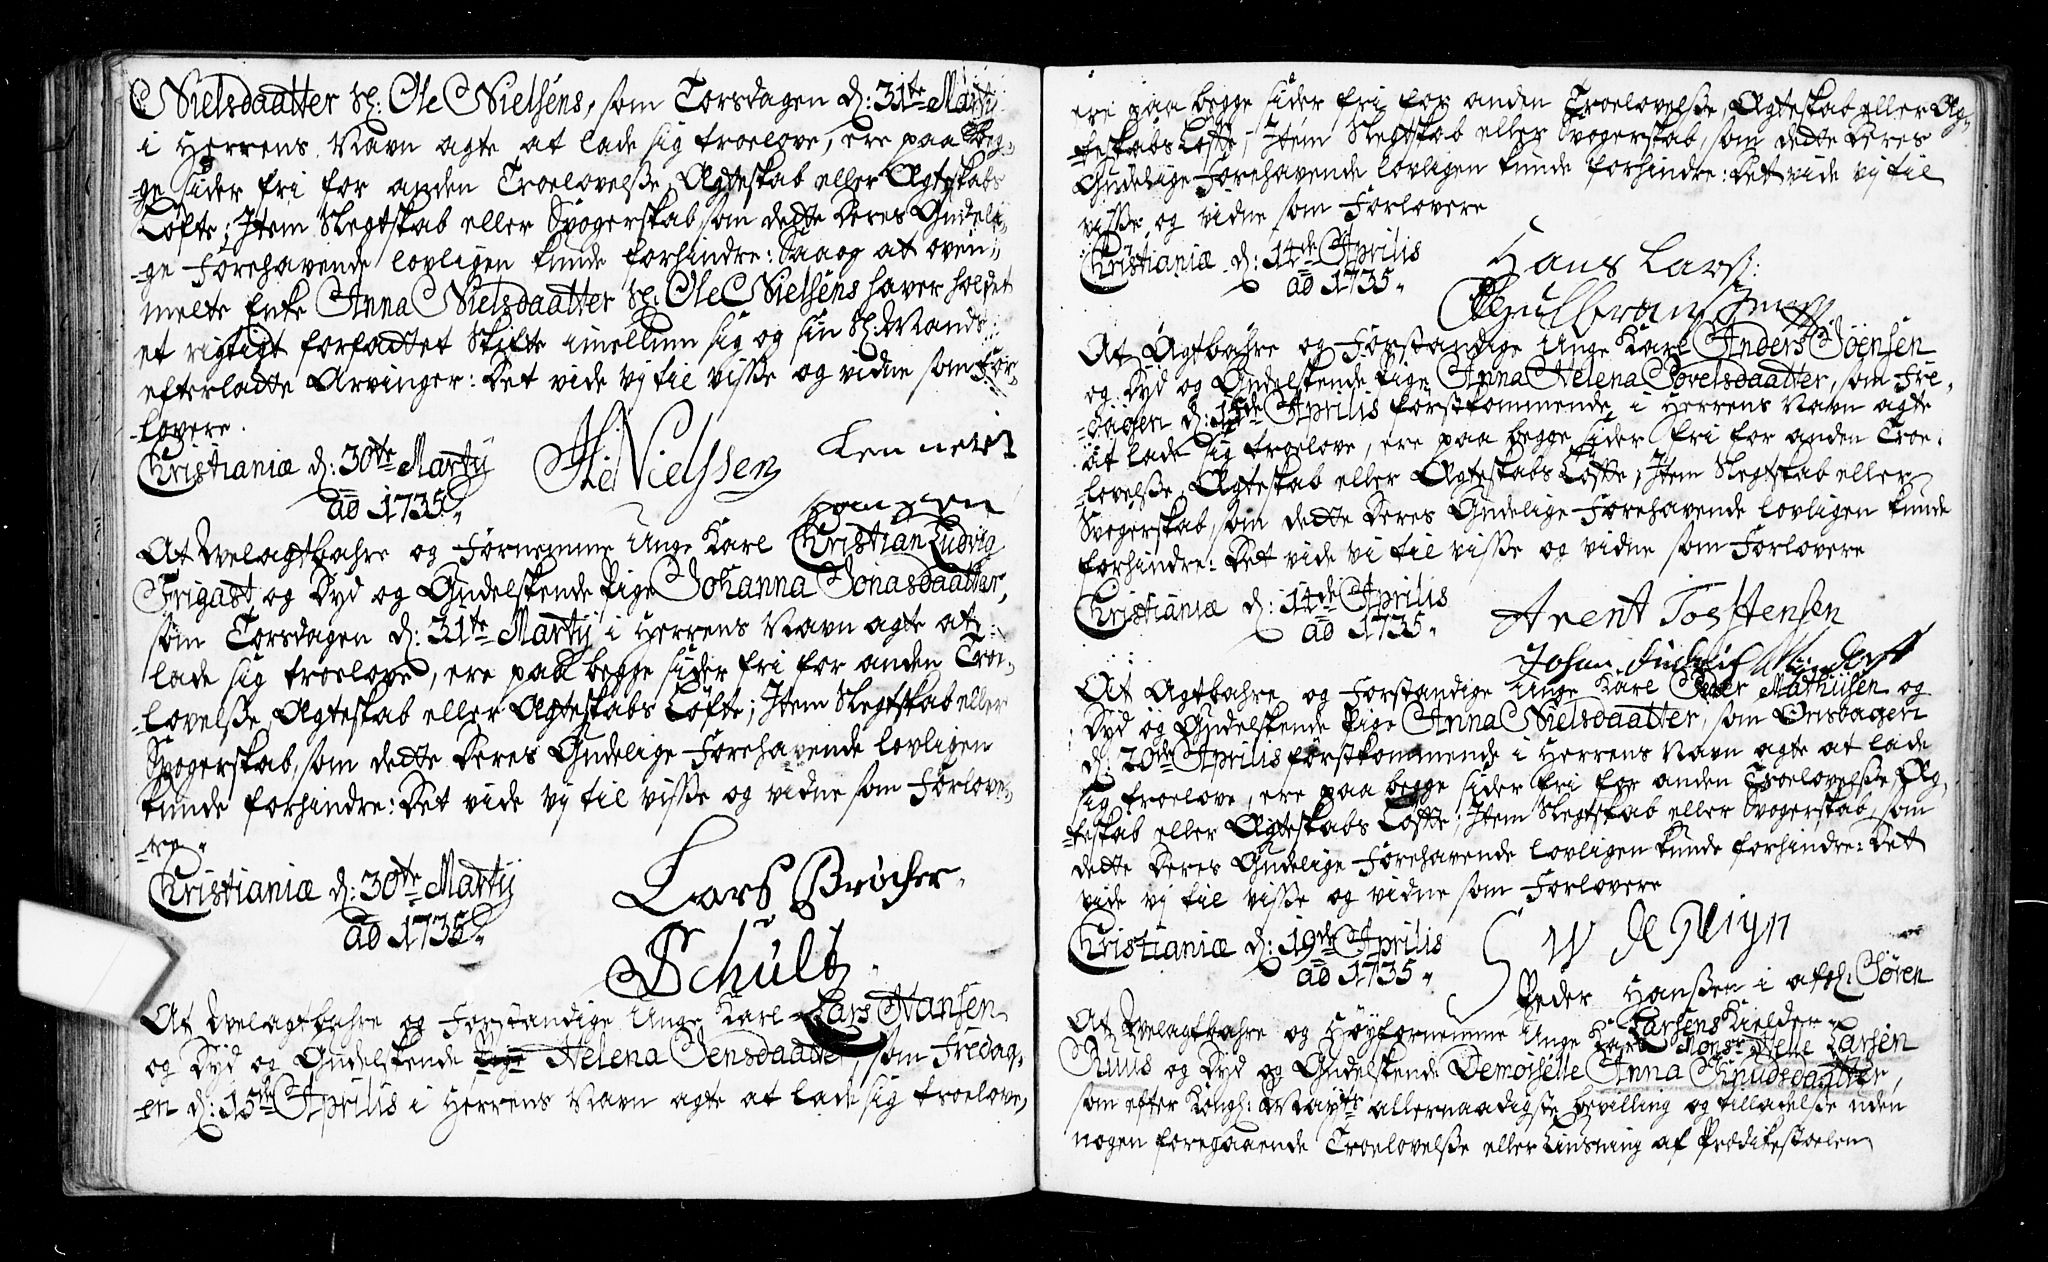 Nielsdaatter Sl: Ole Nielsens, som Torsdagen d: 31te Martij
i Herrens Navn agte at lade sig troelove, ere paa beg-
-ge sider fri for anden Troelovelsse, Ægteskab eller Ægteskabs
Løfte; Item Slegtskab eller Svogerskab, som dette Deres Gudeli-
-ge Forehavende lovligen kunde forhindre: Saa og at oven-
melte Enke Anna Nielsdaatter Sl: Ole Nielsens haver holdet
et rigtigt forfattet Skifte imellum sig og sin Sl: Mands
efterladte Arvinger: Det vide vj til visse og vidne som For-
-lovere.
Christianiæ d: 30te Martij
ao 1735.
Ole Nielssen
At Velagtbahre og Fornemme Unge Karl Christian Ludvig
Frigast, og Dyd og Gudelskende Pige Johanna Jonasdaatter,
som Torsdagen d: 31te Martij i Herrens Navn agte at
lade sig troelove, ere paa begge sider fri for anden Troe-
-lovelsse, Ægteskab eller Ægteskabs Løfte; Item Slegtskab eller
Svogerskab, som dette Deres Gudelige Forehavende lovligen
kunde forhindre: Det vide vj til visse og vidne som Forlove-
-re.
Christianiæ d: 30te Martij
ao 1735.
Lars Brocher.
Schultz.
At Velagtbahre og Forstandige Unge Karl Lars Hansen
og Dyd og Gudelskende Pige Helena Jensdaatter, som Fredag-
-en d: 15de Aprilis i Herrens Navn agte at lade sig troelove,
ere paa begge sider fri for anden Troelovelsse, Ægteskab eller Æg-
-teskabs Løfte; Item Slegtskab eller Svogerskab, som dette Deres
Gudelige Forehavende lovligen kunde forhindre: Det vide vj til
visse og vidne som Forlovere
Christianiæ d: 14de Aprilis
ao 1735.
Hans Larss:
At Agtbahre og Forstandige Unge Karl Anders Joensen
og Dyd og Gudelskende Pige Anna Helena Povelsdaatter, som Fre-
-dagen d: 15de Aprilis førstkommende, i Herrens Navn agte
at lade sig troelove, ere paa begge sider fri for anden Troe-
-lovelsse, Ægteskab eller Ægteskabs Løfte; Item Slegtskab eller
Svogerskab, som dette Deres Gudelige Forehavende lovligen kunde
forhindre: Det vide vi til visse og vidne som Forlovere
Christianiæ d: 14de Aprilis
ao 1735.
Arent Tosttensen
At Agtbahre og Forstandige Unge Karl Peder Mathiisen og
Dyd og Gudelskende Pige Anna Nielsdaatter, som Onsdagen
d: 20de Aprilis førstkommende i Herrens Navn agte at lade
sig troelove, ere paa begge sider fri for anden Troelovelsse, Æg-
-teskab eller Ægteskabs Løfte; Item Slegtskab eller Svogerskab, som
dette Deres Gudelige Forehavende lovligen kunde forhindre: Det
vide vj til visse og vidne som Forlovere
Christianiæ d: 19de Aprilis
ao 1735.
Peder Hanssen i afl: Søren
Larsens Kielder
At Velagtbahre og Høyfornemme Unge Karl Monsr Helle Larsen
Ruus og Dyd og Gudelskende Demoiselle Anna Knudsdaatter,
som efter Kongl: Mayts allernaadigste bevilling og tilladelsse uden
nogen foregaaende Troelovelsse eller Liusning af Prædikestoelen